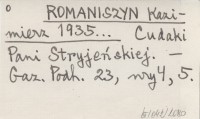 ROMANISZYN Kazi-
mierz 1935... Cudaki
Pani Stryjeńskiej. —
Gaz. Podh. 23, nry 4, 5.